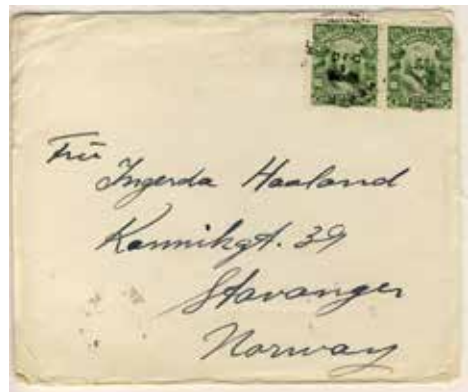 Fru
Ingerda Haaland
Kannikgt. 39
Stavanger
Norway